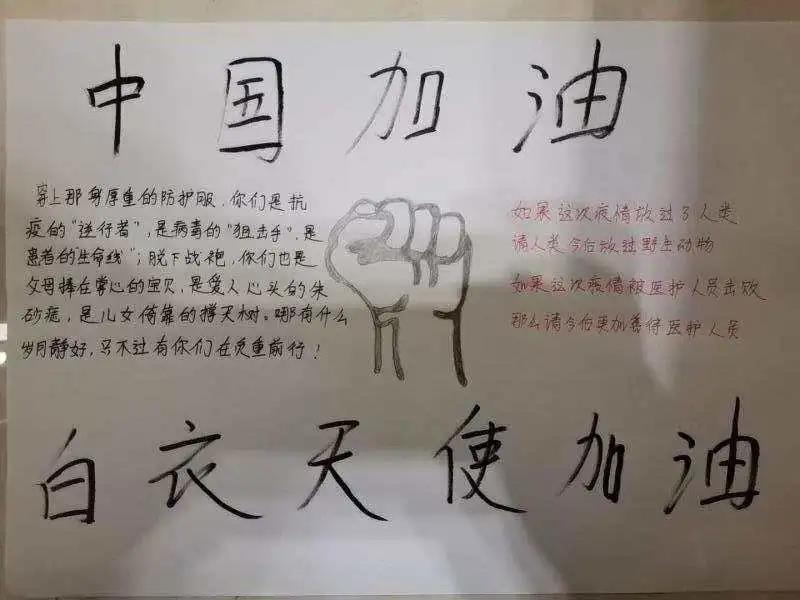 中国加油
穿上那身厚重的防护服，你们是抗
疫的"逆行者"，是病毒的"狙击手"，是
患者的"生命线"；脱下战袍，你们也是
父母捧在掌心的宝贝，是爱人心头的朱
砂痣，是儿女倚靠的撑天树。哪有什么
岁月静好，只不过有你们在负重前行！
如果这次疫情放过了人类
请人类今后放过野生动物
如果这次疫情被医护人员击败
那么请今后更加善待医护人员
白衣天使加油